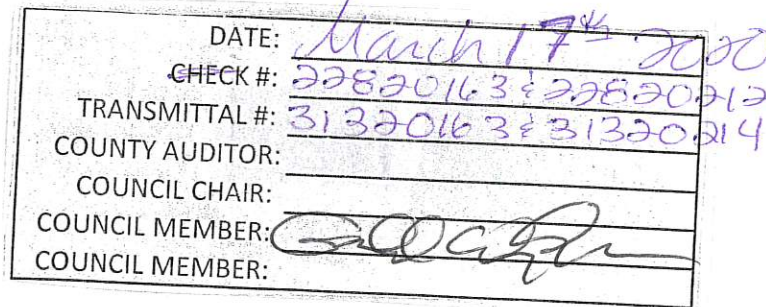 DATE: March 17th 2020
CHECK #: 22820163 & 22820212
TRANSMITTAL #: 31320163 & 31320214
COUNTY AUDITOR:
COUNCIL CHAIR:
COUNCIL MEMBER:
COUNCIL MEMBER: